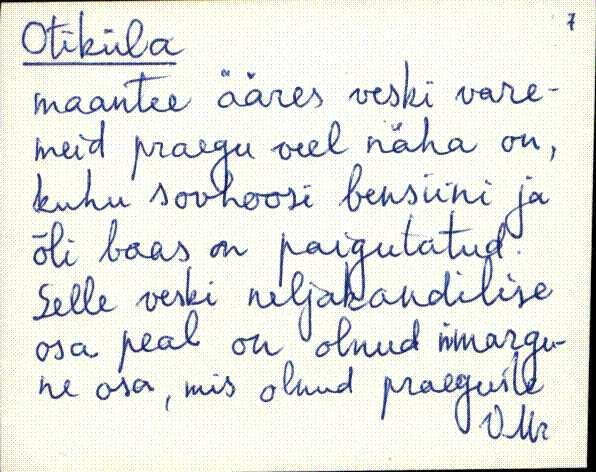 7
Otiküla
maantee ääres veski vare-
meid praegu veel näha on,
kuhu sovhoosi bensiini ja
õli baas on paigutatud.
Selle veski neljakandilise
osa peal on olnud ümmargu-
ne osa, mis olnud praeguste